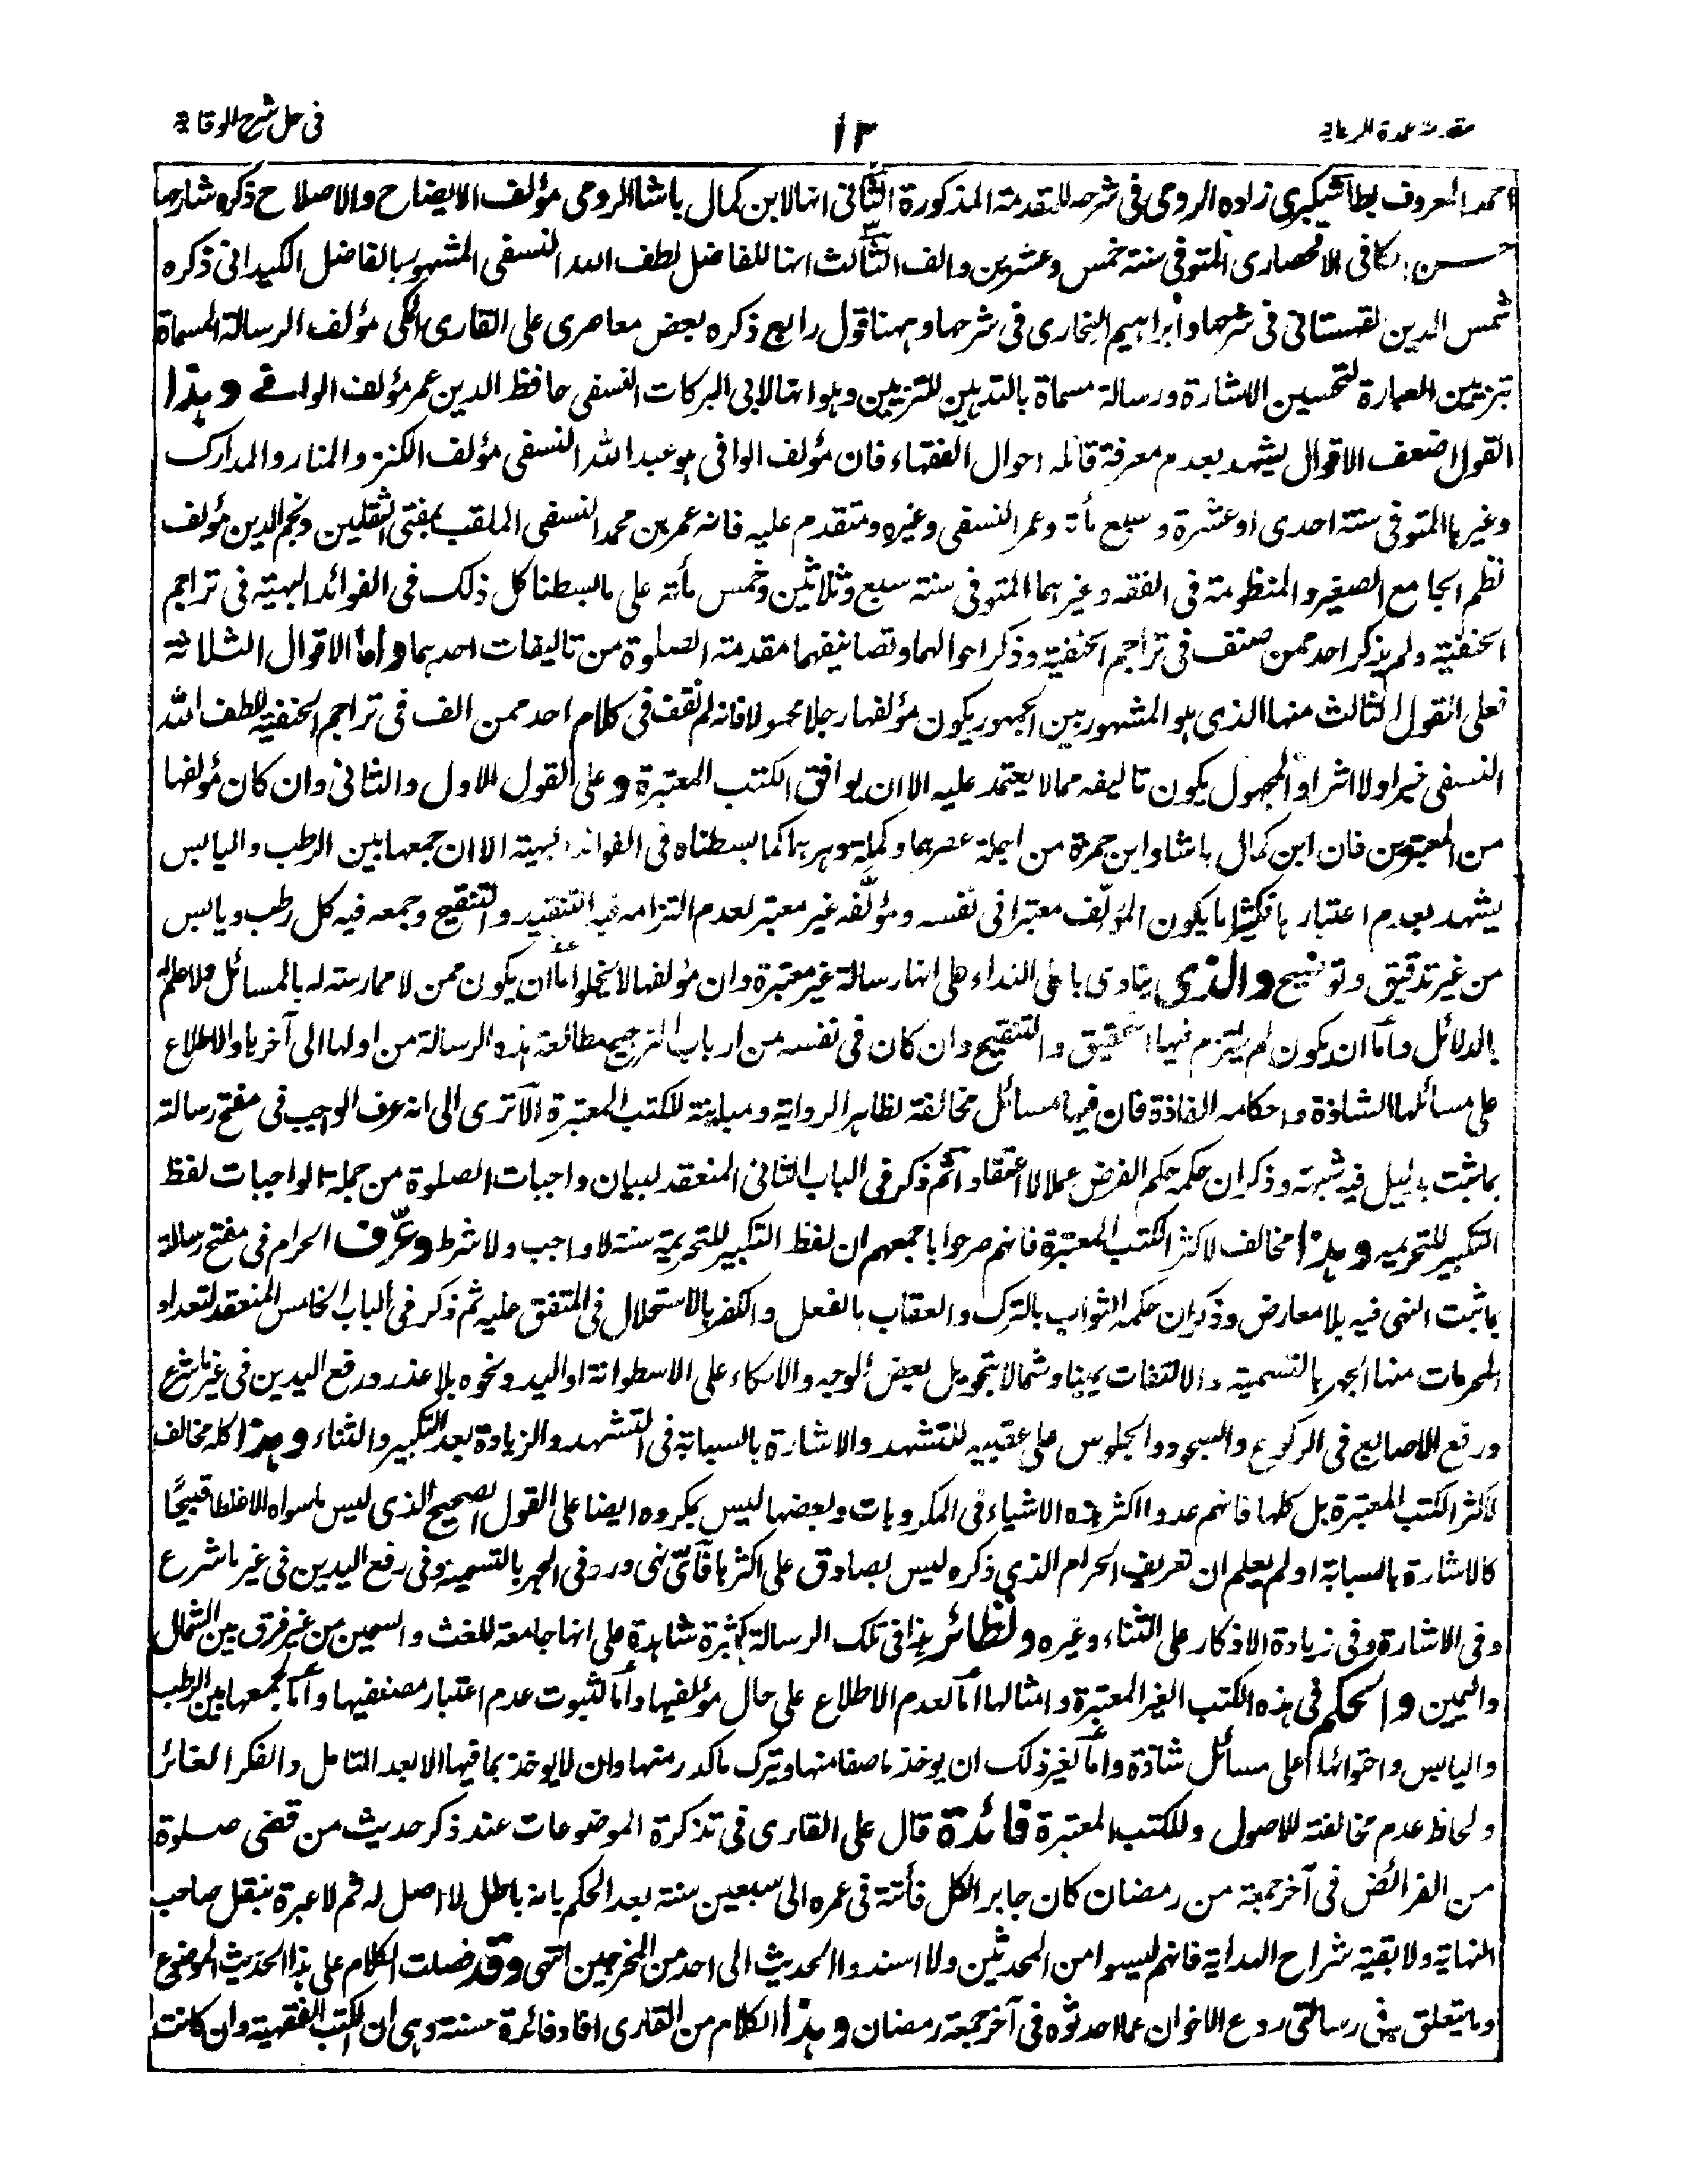 مقدمة عمدة الرعاية
١٣
في حل شرح الوقاية
احمد المعروف بطاشكبرى زاده الرومى فى شرحه للمقدمة المذكورة الثانى انها لابن كمال باشا الرومى مؤلف الايضاح والاصلاح ذكره شارحها
حسن كافى الاقحصارى المتوفى سنة خمس وعشرين والف الثالث انها للفاضل لطف الله النسفى المشهور بالفاضل الكيدانى ذكره
شمس الدين القهستانى فى شرحها وابراهيم البخارى فى شرحها وههنا قول رابع ذكره بعض معاصرى على القارى المكى مؤلف الرسالة المسماة
بتزيين العبارة لتحسين الاشارة ورسالة مسماة بالتدهين للتزيين وهو انها لابى البركات النسفى حافظ الدين عمر مؤلف الوافى وهذا
القول اضعف الاقوال يشهد بعدم معرفة قائله احوال الفقهاء فان مؤلف الوافى هو عبد الله النسفى مؤلف الكنز والمنار والمدارك
وغيرها المتوفى سنة احدى او عشرة وسبع مأة وعمر النسفى وغيره ومتقدم عليه فانه عمر بن محمد النسفى الملقب بمفتى الثقلين ونجم الدين مؤلف
نظم الجامع الصغير والمنظومة فى الفقه وغيرهما المتوفى سنة سبع وثلاثين وخمس مأة على ما بسطنا كل ذلك فى الفوائد البهية فى تراجم
الحنفية ولم يذكر احد ممن صنف فى تراجم الحنفية وذكر احوالهما وتصانيفهما مقدمة الصلوة من تاليفات احدهما واما الاقوال الثلاثة
فعلى القول الثالث منها الذى هو المشهور بين الجمهور يكون مؤلفها رجلا مجهولا فانه لم نقف فى كلام احد ممن الف فى تراجم الحنفية للطف الله
النسفى خيرا ولا اثرا والمجهول يكون تاليفه مما لا يعتمد عليه الا ان يوافق الكتب المعتبرة وعلى القول الاول والثانى وان كان مؤلفها
من المعتبرين فان ابن كمال باشا وابن حمزة من اجلة عصرهما وكملة دهرهما كما بسطناه فى الفوائد البهية الا ان جمعها بين الرطب واليابس
يشهد بعدم اعتبارها فكثيرا ما يكون المؤلِّف معتبرا فى نفسه ومؤلَّفه غير معتبر لعدم التزامه فيه التنقيد والتنقيح وجمعه فيه كل رطب ويابس
من غير تدقيق وتوضيح والذى ينادى باعلى النداء على انها رسالة غير معتبرة وان مؤلفها لا يخلو اما ان يكون ممن لا ممارسته له بالمسائل ولا علم له
بالدلائل واما ان يكون لم يلتزم فيها التحقيق والتنقيح وان كان فى نفسه من ارباب الترجيح مطالعة هذه الرسالة من اولها الى آخرها والاطلاع
على مسائلها الشاذة واحكامه الفاذة فان فيها مسائل مخالفة لظاهر الرواية ومباينة للكتب المعتبرة الا ترى الى انه عرف الواجب فى مفتح رسالته
بما ثبت بدليل فيه شبهة وذكر ان حكمه حكم الفرض عملا لا اعتقادا ثم ذكر فى الباب الثانى المنعقد لبيان واجبات الصلوة من جملة الواجبات لفظ
التكبير للتحريمه وهذا مخالف لاكثر الكتب المعتبرة فانهم صرحوا باجمعهم ان لفظ التكبير للتحريمة سنة لا واجب ولا شرط وعرّف الحرام فى مفتح رسالة
بما ثبت النهى فيه بلا معارض وذكر ان حكمه الثواب بالترك والعقاب بالفعل والكفر بالاستحلال فى المتفق عليه ثم ذكر فى الباب الخامس المنعقد لتعداد
المحرمات منها الجهر بالتسمية والالتفات يمينا وشمالا بتحويل بعض الوجه والاتكاء على الاسطوانة او اليد ونحوه بلا عذر ورفع اليدين فى غير ما شرع
ورفع الاصابع فى الركوع والسجود والجلوس على عقبيه للتشهد والاشارة بالسبابة فى التشهد والزيادة بعد التكبير والثناء وهذا كله مخالف
لاكثر الكتب المعتبرة بل كلها فانهم عدوا اكثر هذه الاشياء فى المكروهات وبعضها ليس بمكروه ايضا على القول الصحيح الذى ليس ما سواه الا غلطا قبيحًا
كالاشارة بالسبابة او لم يعلم ان تعريف الحرام الذى ذكره ليس بصادق على اكثرها فأىّ نهى ورد فى الجهر بالتسمية وفى رفع اليدين فى غير ما شرع
وفى الاشارة وفى زيادة الاذكار على الثناء وغيره ونظائر هذا فى تلك الرسالة كثيرة شاهدة على انها جامعة للغث والسمين من غير فرق بين الشمال
واليمين والحكم فى هذه الكتب الغير المعتبرة وامثالها اما لعدم الاطلاع على حال مؤلفيها واما لثبوت عدم اعتبار مصنفيها واما لجمعها بين الرطب
واليابس واحتوائها على مسائل شاذة واما لغير ذلك ان يوخذ ما صفا منها ويترك ما كدر منها وان لا يوخذ بما فيها الا بعد التامل والفكر الغائر
ولحاظ عدم مخالفته للاصول وللكتب المعتبرة فائدة قال على القارى فى تذكرة الموضوعات عند ذكر حديث من قضى صلوة
من الفرائض فى آخر جمعة من رمضان كان جابر الكل فائتة فى عمره الى سبعين سنة بعد الحكم بانه باطل لا اصل له ثم لا عبرة بنقل صاحب
النهاية ولا بقية شراح الهداية فانهم ليسوا من المحدثين ولا اسندوا الحديث الى احد من المخرجين انتهى وقد فصلت الكلام على هذا الحديث الموضوع
وما يتعلق به فى رسالتى ردع الاخوان عما احدثوه فى آخر جمعة رمضان وهذا الكلام من القارى افاد فائدة حسنة وهى ان الكتب الفقهية وان كانت